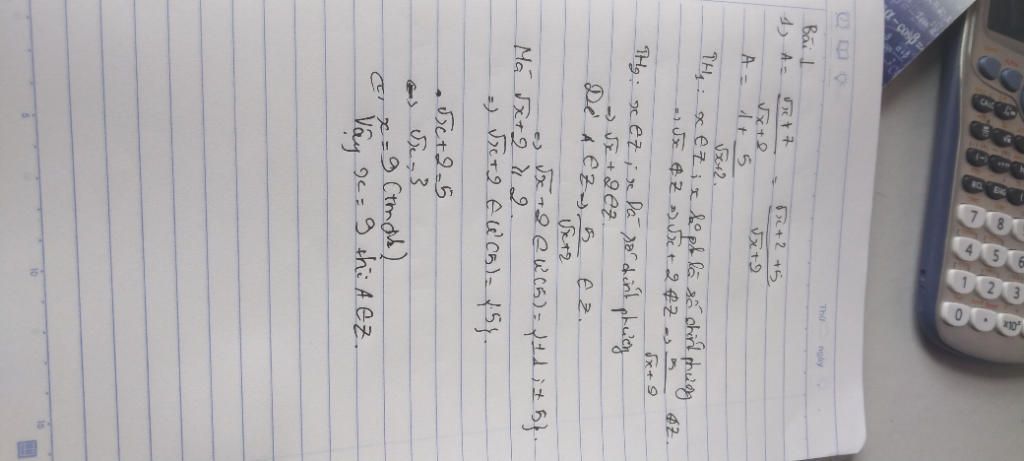 Thứ
ngày
Bài 1
1, A = √x + 7 / √x + 2 = √x + 2 + 5 / √x + 2
A = 1 + 5 / √x + 2
TH1: x ∈ Z ; x ko phải là số chính phương
=> √x ∉ Z => √x + 2 ∉ Z => 5 / √x + 2 ∉ Z.
TH2: x ∈ Z ; x là số chính phương
=> √x + 2 ∈ Z.
Để A ∈ Z => 5 / √x + 2 ∈ Z.
=> √x + 2 ∈ Ư(5) = {±1 ; ±5}.
Mà √x + 2 ≥ 2
=> √x + 2 ∈ Ư(5) = {5}.
√x + 2 = 5
<=> √x = 3
<=> x = 9 (tmđk)
Vậy x = 9 thì A ∈ Z.
5
10
15
7 8
4 5 6
1 2 3
0 • x10ˣ